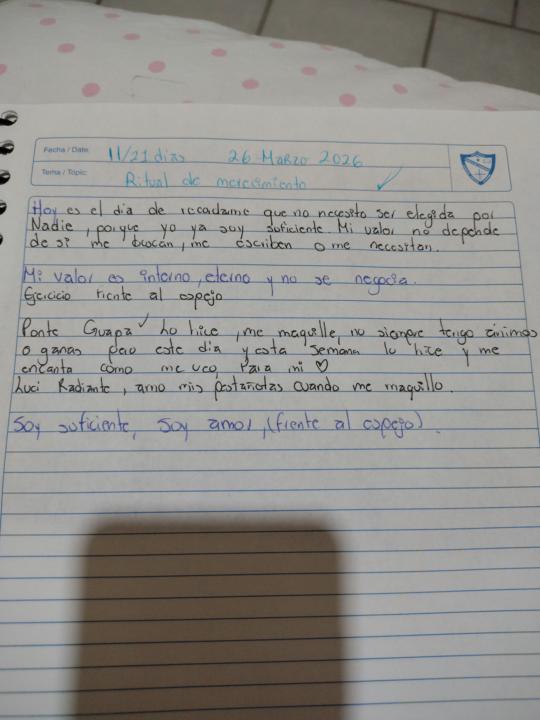 Fecha / Date: 11/21 dias 26 Marzo 2026
Tema / Topic: Ritual de merecimiento
Hoy es el dia de recordarme que no necesito ser elegida por
Nadie, porque yo ya soy suficiente. Mi valor no depende
de si me buscan, me escriben o me necesitan.
Mi valor es interno, eterno y no se negocia.
Ejercicio frente al espejo
Ponte Guapa ✓ Lo hice, me maquille, no siempre tengo ánimos
o ganas pero este dia y esta semana lo hice y me
encanta cómo me veo, Para mi ♡
Luci Radiante, amo mis pestañotas cuando me maquillo.
Soy suficiente, Soy amor, (frente al espejo).